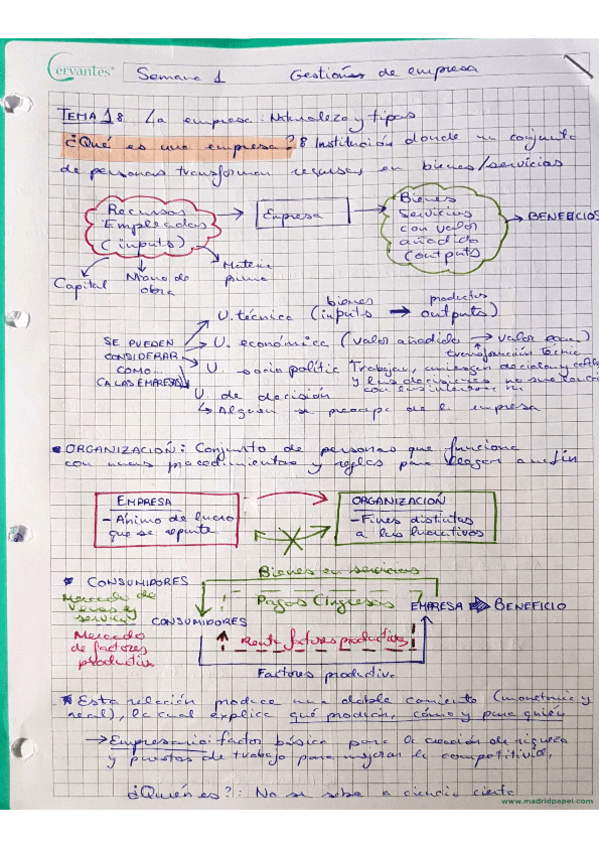 Cervantes
Semana 1 Gestiones de empresa
TEMA 1: La empresa: Naturaleza y tipos
¿Qué es una empresa?: Institución donde un conjunto
de personas transforman recursos en bienes/servicios
Recursos
Empleados
(inputs)
Empresa
Bienes
Servicios
con valor
añadido
(outputs)
BENEFICIOS
Capital
Mano de
obra
Materia
prima
SE PUEDEN
CONSIDERAR
COMO...
A LAS EMPRESAS
bienes productos
U. técnica (inputs → outputs)
U. económica (valor añadido → valor
transformación técnica
U. socio polític Trabajan,
y las decisiones no
U. de decisión
↳ Alguien se preocupa de la empresa
• ORGANIZACIÓN: Conjunto de personas que funciona
con unos procedimientos y reglas para un fin
EMPRESA
- Ánimo de lucro
que se reparte
ORGANIZACIÓN
- Fines distintos
a los lucrativos
Bienes en servicios
CONSUMIDORES
Mercado de
y
servicios
Pagos (ingresos)
EMPRESA → BENEFICIO
CONSUMIDORES
Mercado
de factores
productivos
Renta factores productivos
Factores productivo
* Esta relación produce una doble corriente (monetaria y
real), la cual explica qué producir, cómo y para quién
→ Empresario: factor básico para la creación de riqueza
y puestos de trabajo para mejorar la
¿Quién es?: No se sabe a ciencia cierta
www.madridpapel.com